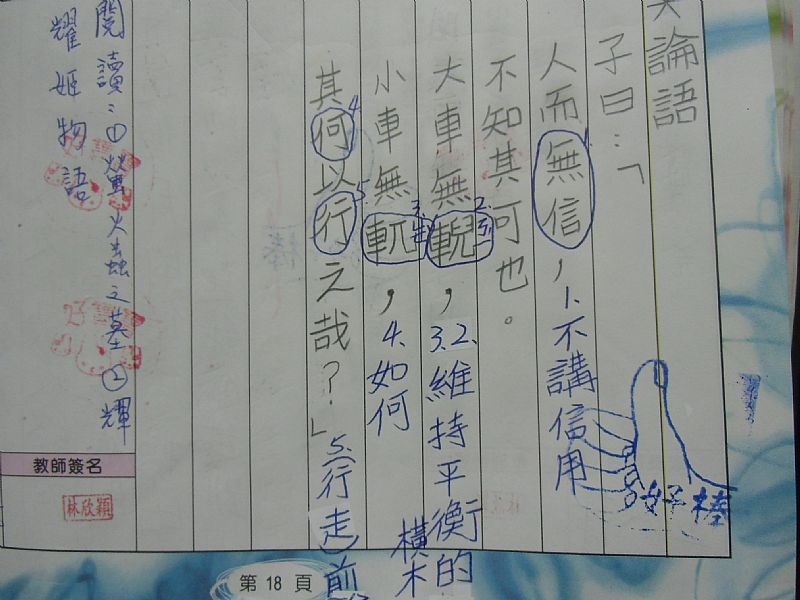 論語
子曰:「
人而無信,1.不講信用
不知其可也。
大車無輗,3.2.維持平衡的
橫木
小車無軏,4.如何
其何以行之哉?」5.(行走)前
閱讀:①螢火蟲之墓②輝
耀姬物語
好棒
教師簽名
林欣穎
第 18 頁